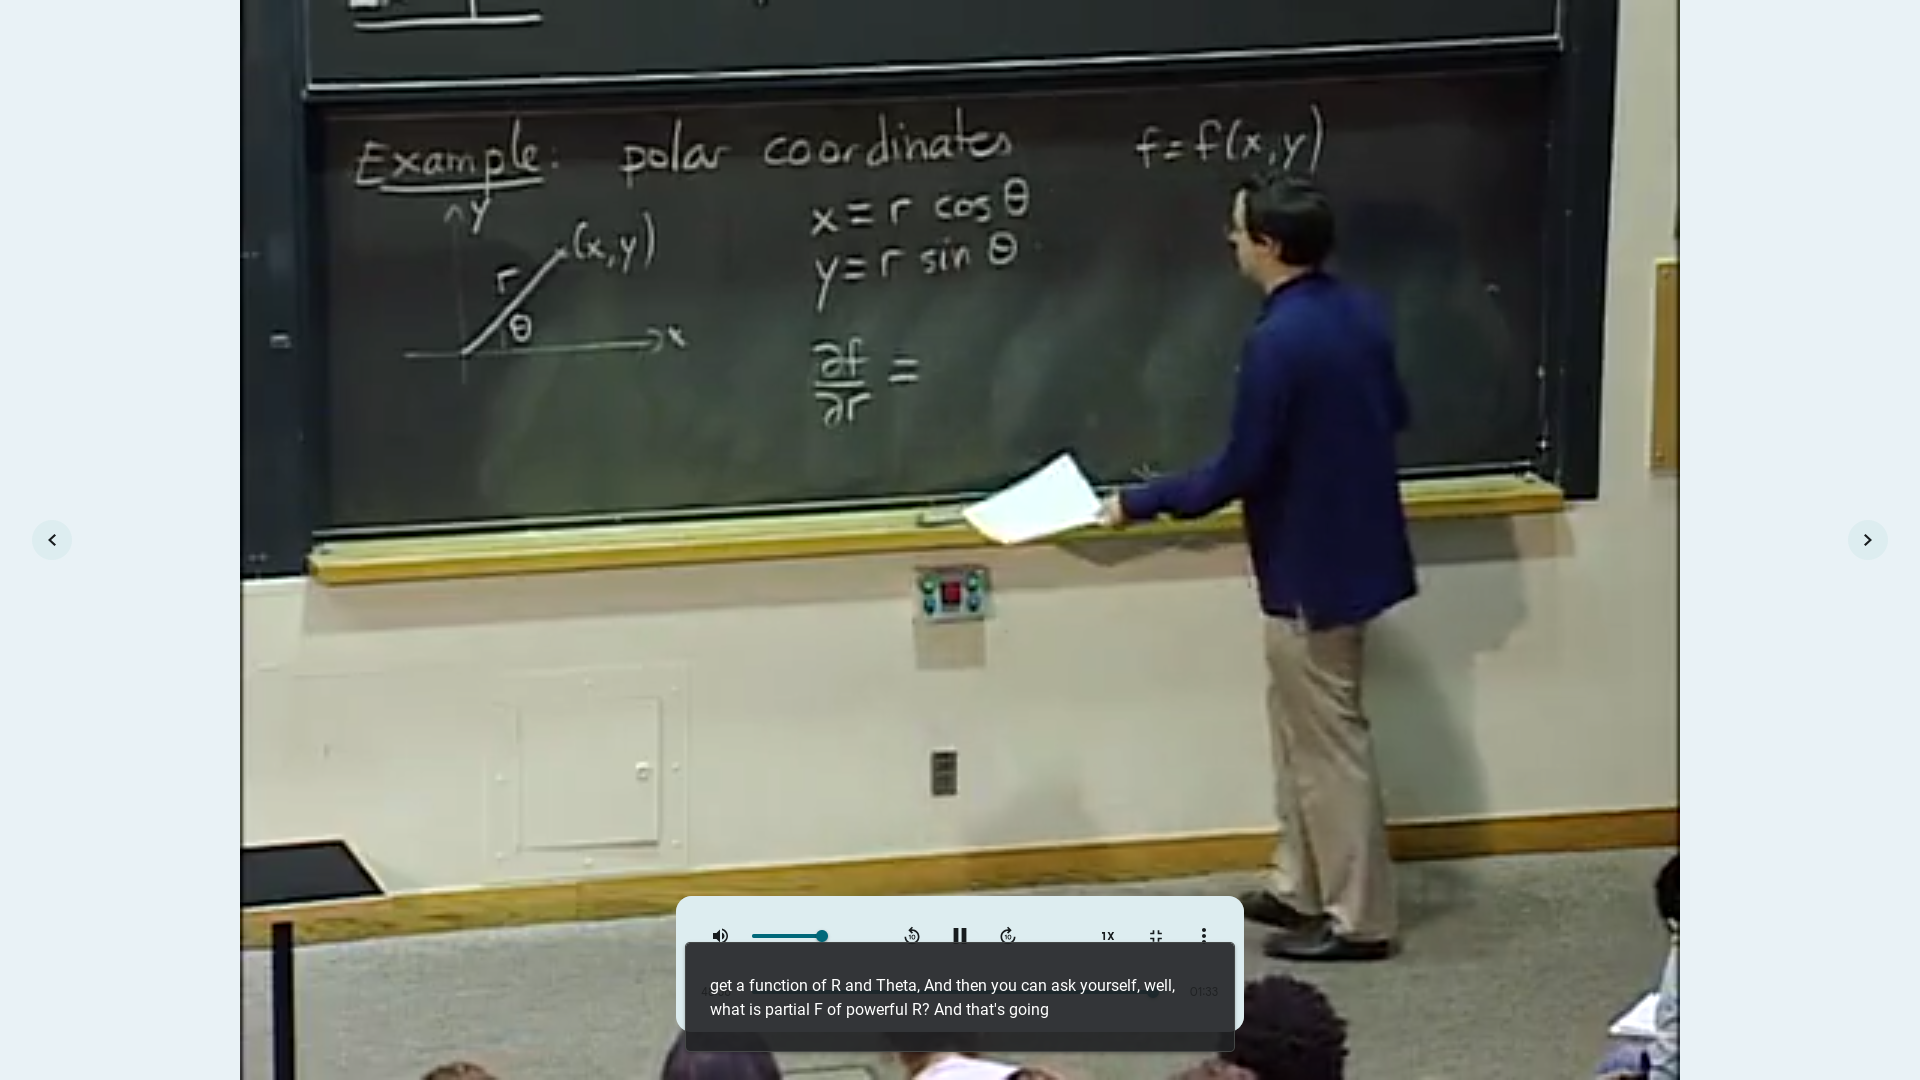 Example: polar coordinates
f = f(x,y)
y
(x,y)
r
θ
x
x = r cos θ
y = r sin θ
∂f/∂r =
10
10
1X
01:33
get a function of R and Theta, And then you can ask yourself, well,
what is partial F of powerful R? And that's going